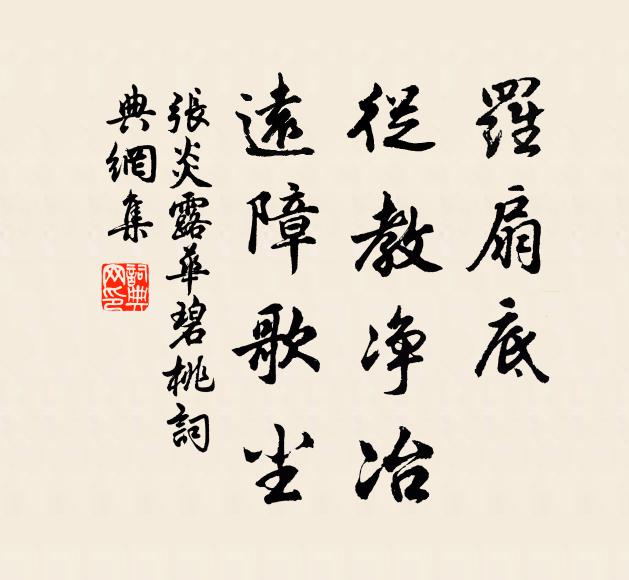 羅扇底
從教净冶
遠障歌尘
張炎露華碧桃詞
典網集
詞典
网印